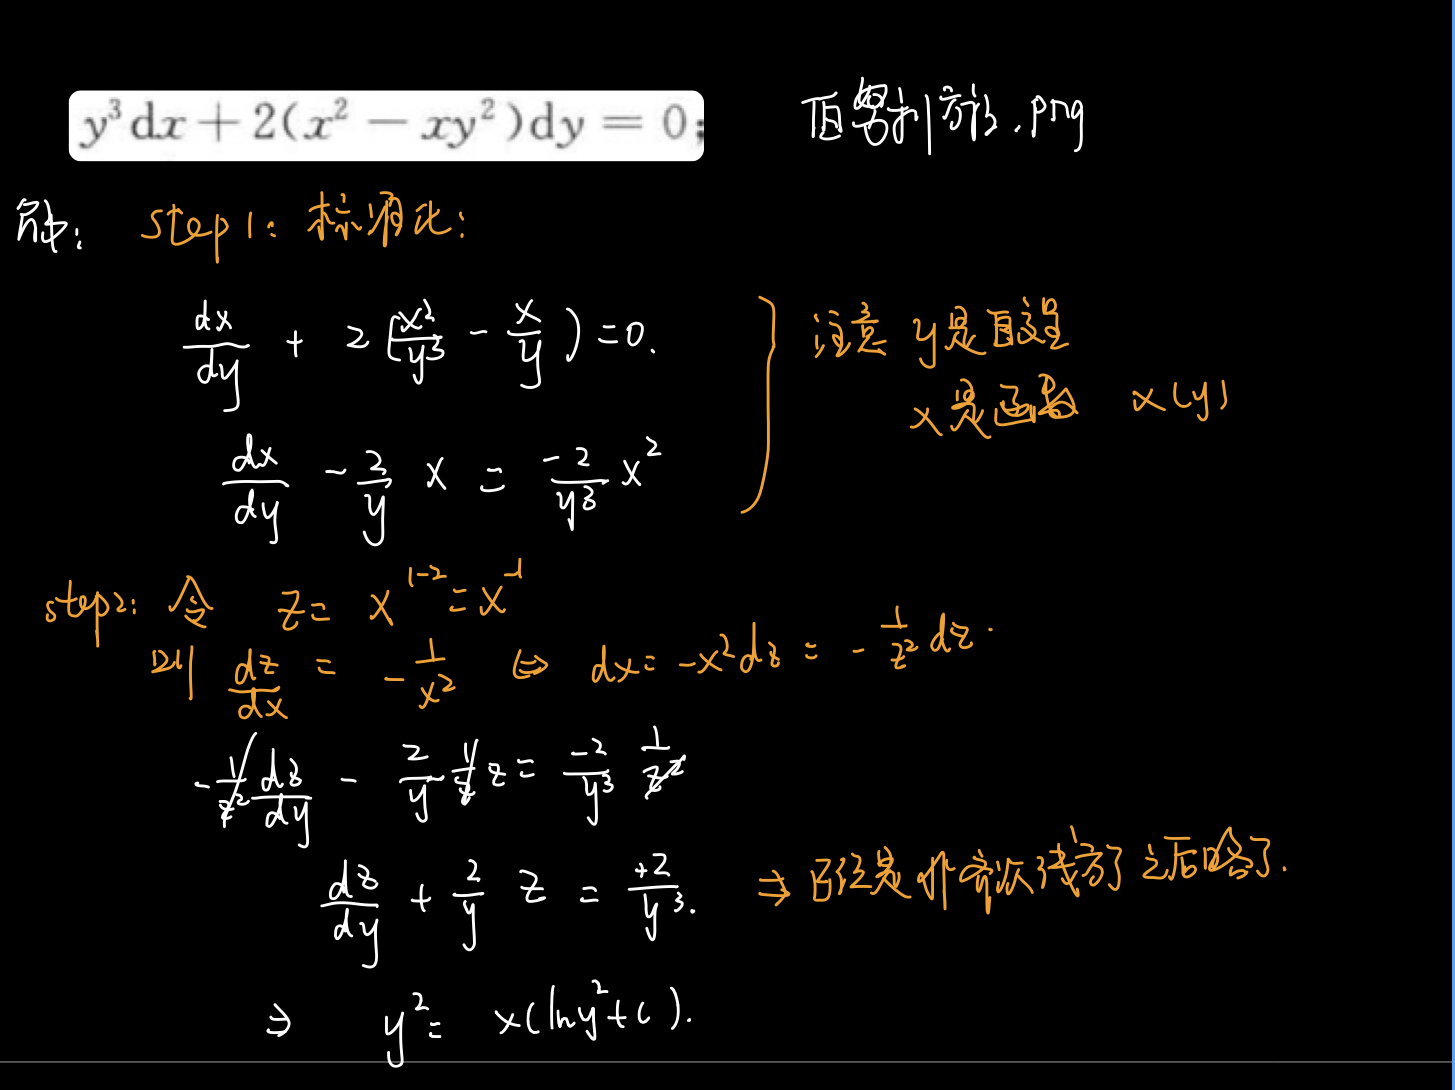 y³dx + 2(x² − xy²)dy = 0;
伯努利方程.png
解: step1: 标准化:
dx/dy + 2(x²/y³ − x/y) = 0.
dx/dy − 2/y x = −2/y³ x²
注意 y是自变量
x是函数 x(y)
step2: 令 z = x^(1−2) = x^(−1)
则 dz/dx = −1/x² ⇔ dx = −x²dz = −1/z² dz.
−1/z² dz/dy − 2/y 1/z z = −2/y³ 1/z²
dz/dy + 2/y z = +2/y³. ⇒ 已经是非齐次线方了之后略了.
⇒ y² = x(lny² + C).